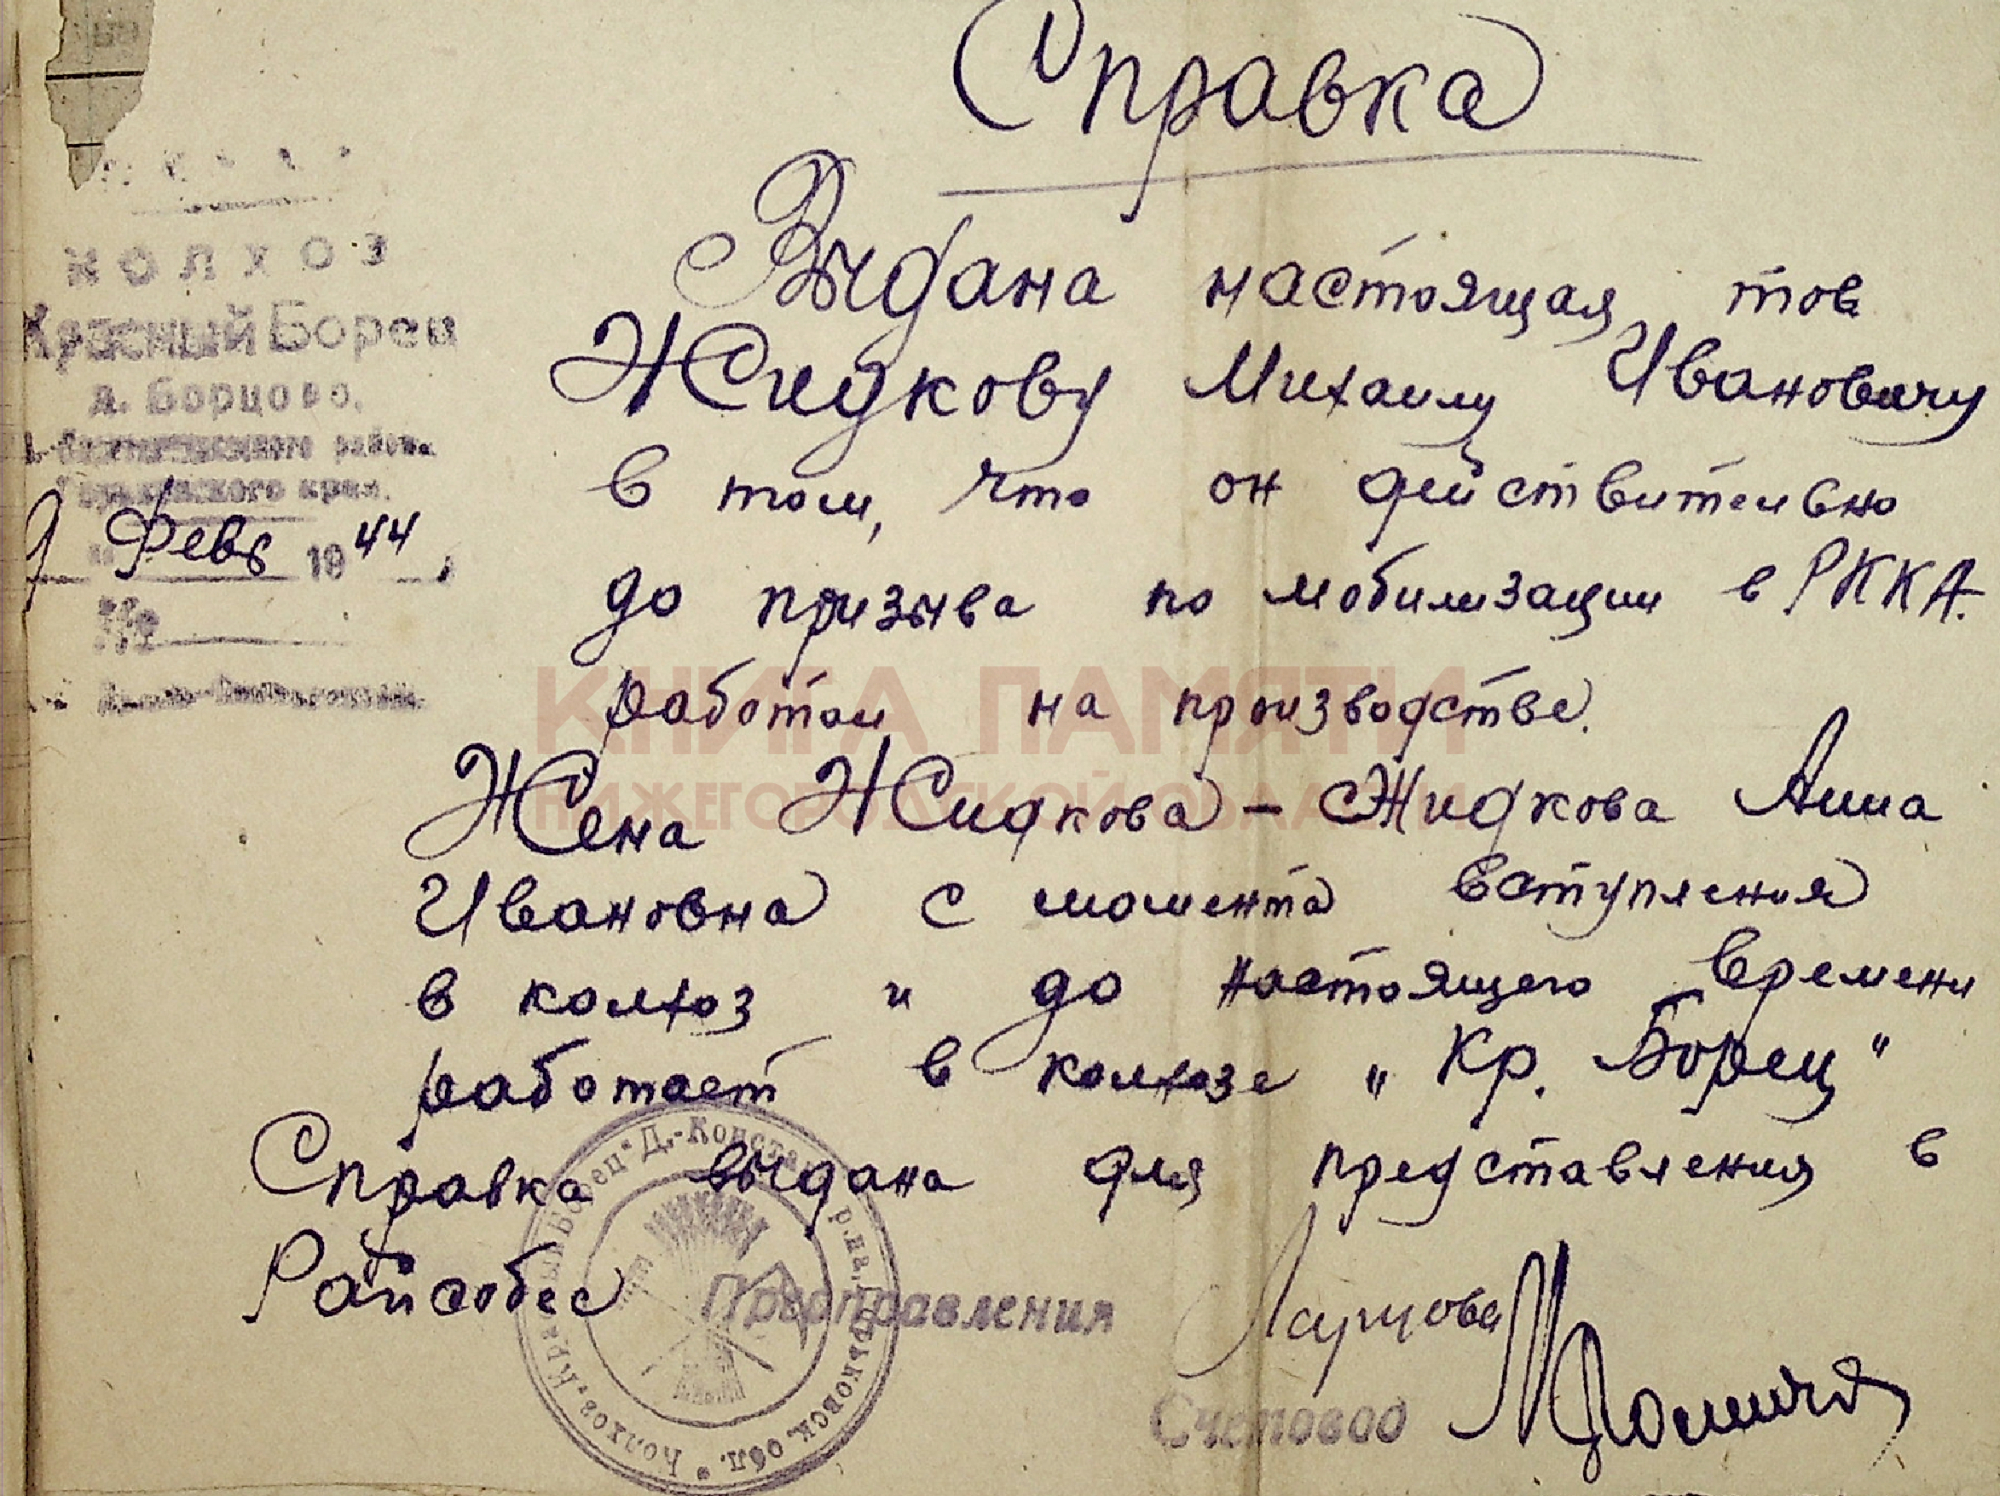 Справка
КОЛХОЗ
Красный Борец
д. Борцово,
района
Горьковского края.
9 Февр 1944
№
Выдана настоящая тов
Жидкову Михаилу Ивановичу
в том, что он действительно
до призыва по мобилизации в РККА.
работал на производстве.
Жена Жидкова – Жидкова Анна
Ивановна с момента вступления
в колхоз и до настоящего времени
работает в колхозе „Кр. Борец"
Справка выдана для представления в
Райсобес
Предправления
Счетовод
Колхоз „Красный Борец" Д.-Конста р-на, Горьковск. обл.
КНИГА ПАМЯТИ
НИЖЕГОРОДСКОЙ ОБЛАСТИ